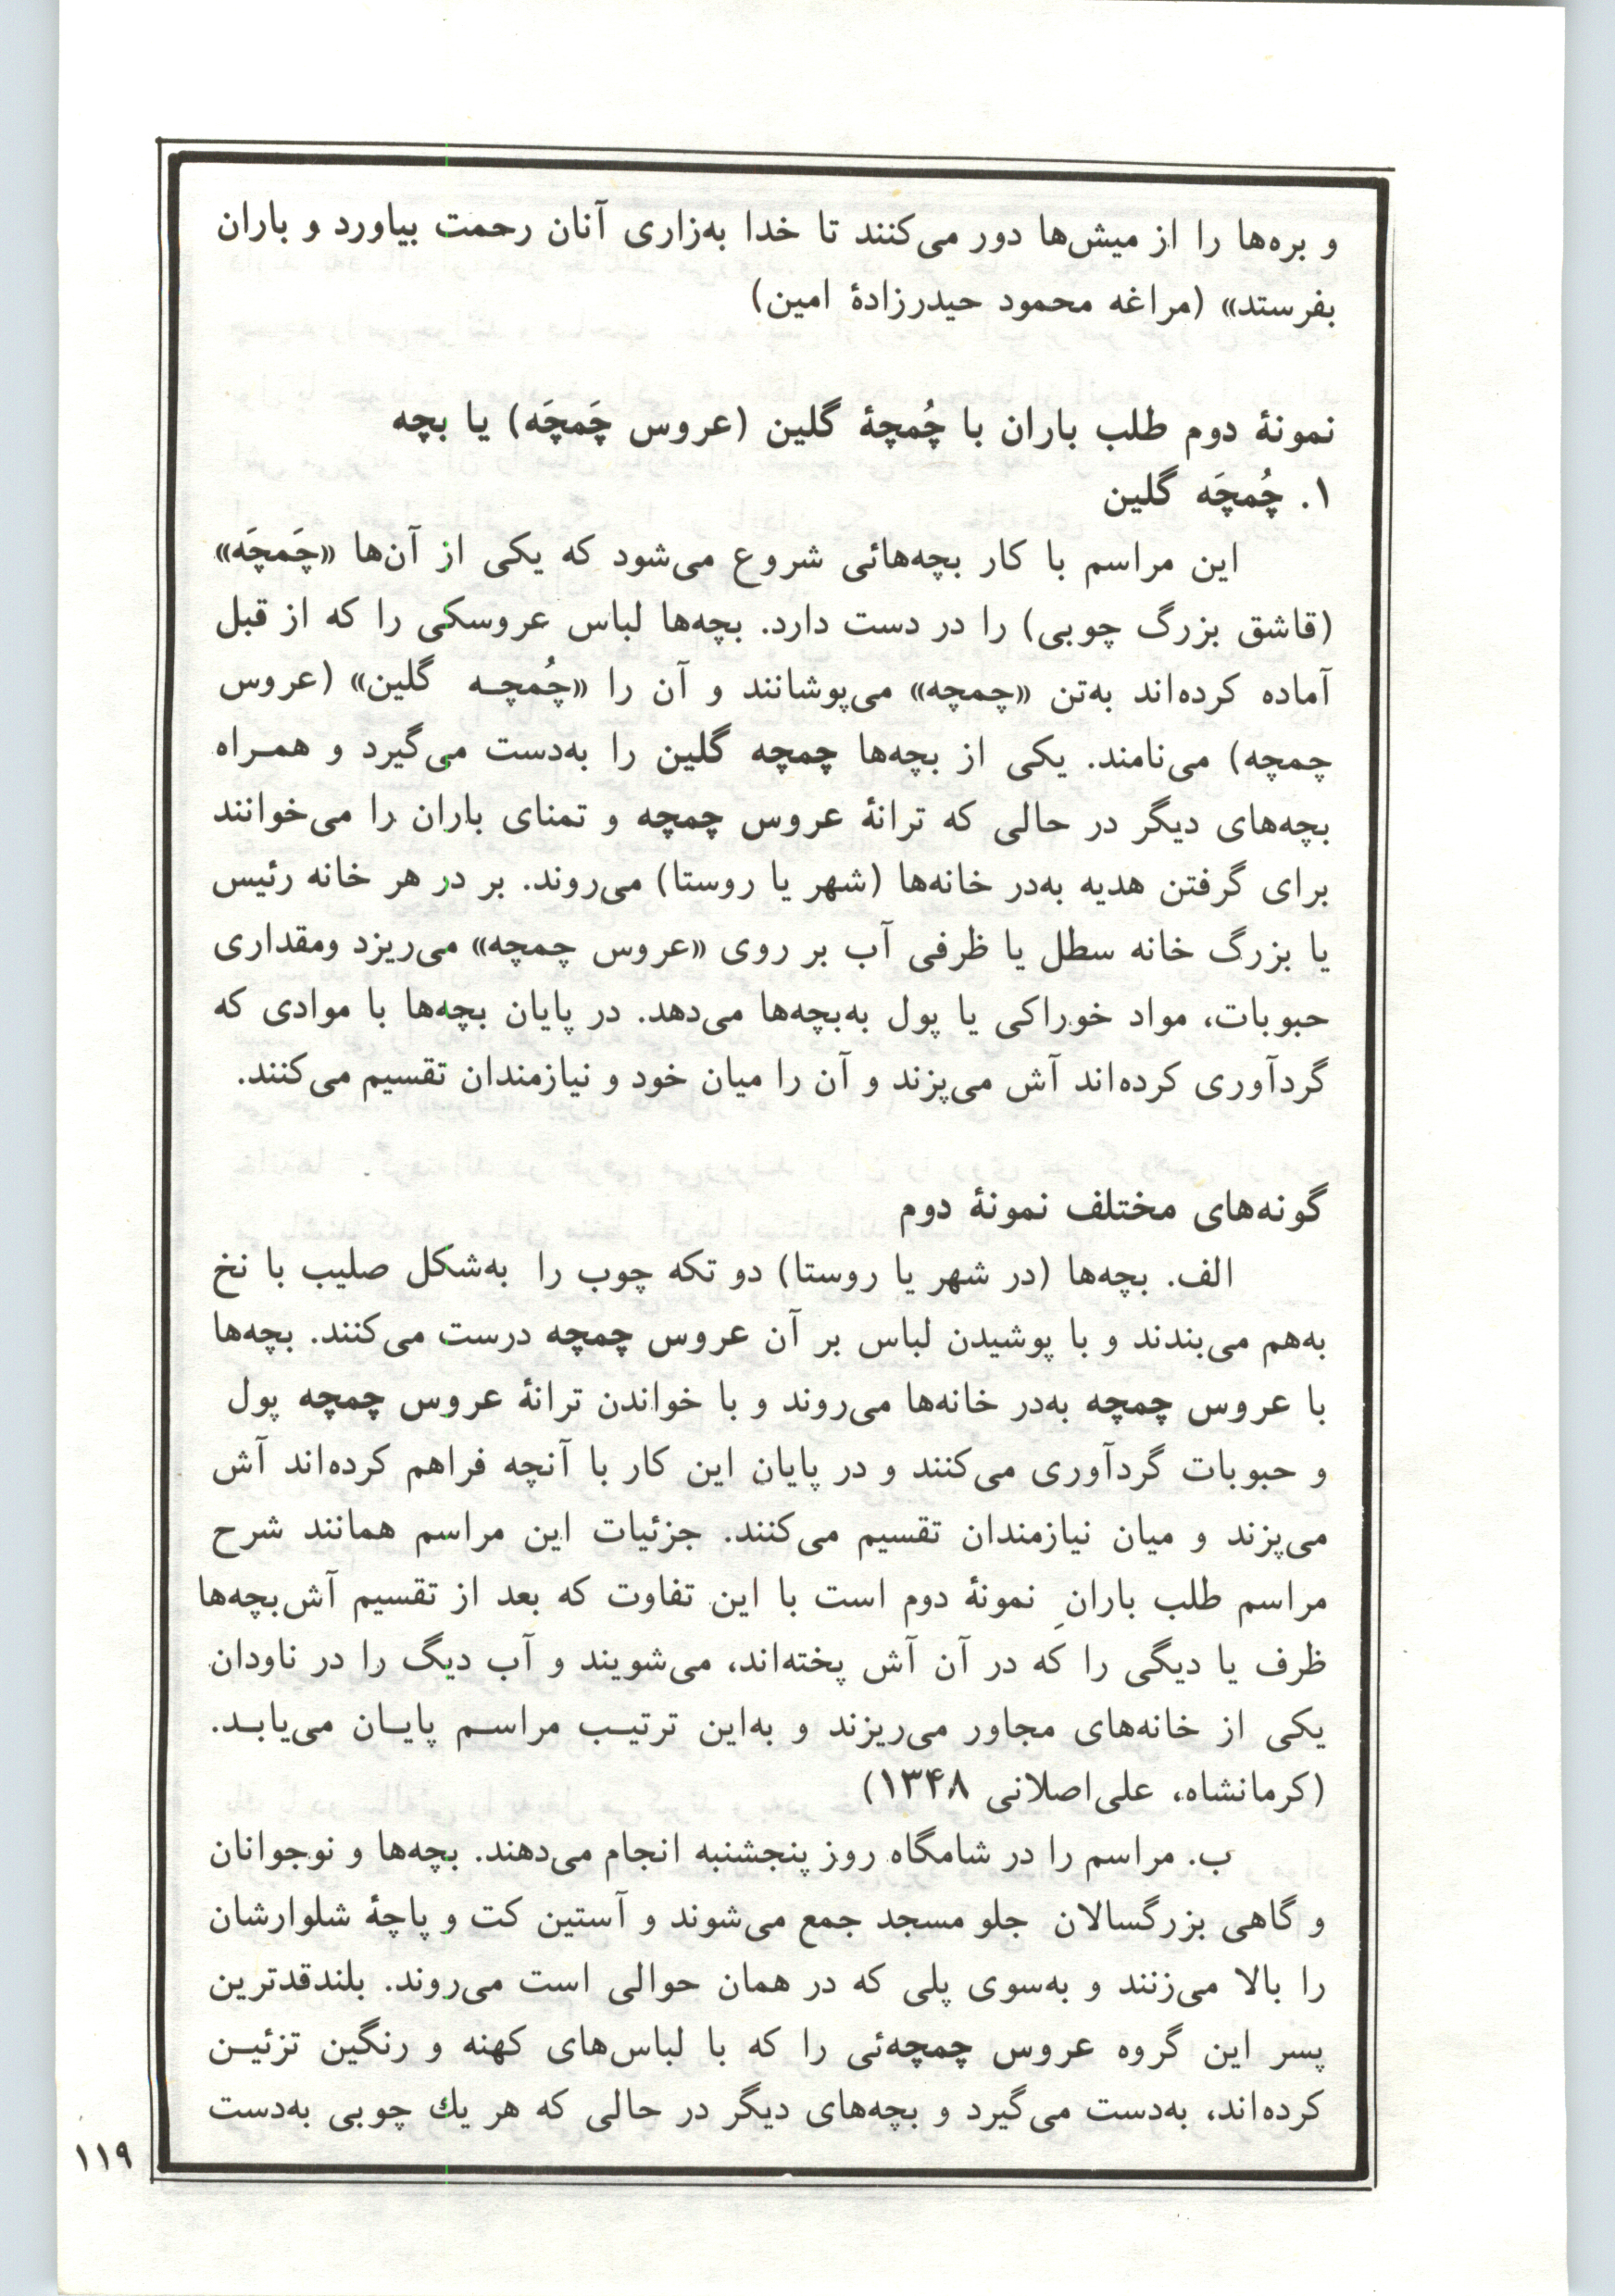 و بره‌ها را از میش‌ها دور می‌کنند تا خدا به‌زاری آنان رحمت بیاورد و باران
بفرستد» (مراغه محمود حیدرزادهٔ امین)
نمونهٔ دوم طلب باران با چُمچهٔ گلین (عروس چَمچَه) یا بچه
۱. چُمچَه گلین
این مراسم با کار بچه‌هائی شروع می‌شود که یکی از آن‌ها «چَمچَه»
(قاشق بزرگ چوبی) را در دست دارد. بچه‌ها لباس عروسکی را که از قبل
آماده کرده‌اند به‌تن «چمچه» می‌پوشانند و آن را «چُمچـه گلین» (عروس
چمچه) می‌نامند. یکی از بچه‌ها چمچه گلین را به‌دست می‌گیرد و همـراه
بچه‌های دیگر در حالی که ترانهٔ عروس چمچه و تمنای باران را می‌خوانند
برای گرفتن هدیه به‌در خانه‌ها (شهر یا روستا) می‌روند. بر در هر خانه رئیس
یا بزرگ خانه سطل یا ظرفی آب بر روی «عروس چمچه» می‌ریزد ومقداری
حبوبات، مواد خوراکی یا پول به‌بچه‌ها می‌دهد. در پایان بچه‌ها با موادی که
گردآوری کرده‌اند آش می‌پزند و آن را میان خود و نیازمندان تقسیم می‌کنند.
گونه‌های مختلف نمونهٔ دوم
الف. بچه‌ها (در شهر یا روستا) دو تکه چوب را به‌شکل صلیب با نخ
به‌هم می‌بندند و با پوشیدن لباس بر آن عروس چمچه درست می‌کنند. بچه‌ها
با عروس چمچه به‌در خانه‌ها می‌روند و با خواندن ترانهٔ عروس چمچه پول
و حبوبات گردآوری می‌کنند و در پایان این کار با آنچه فراهم کرده‌اند آش
می‌پزند و میان نیازمندان تقسیم می‌کنند. جزئیات این مراسم همانند شرح
مراسم طلب بارانِ نمونهٔ دوم است با این تفاوت که بعد از تقسیم آش‌بچه‌ها
ظرف یا دیگی را که در آن آش پخته‌اند، می‌شویند و آب دیگ را در ناودان
یکی از خانه‌های مجاور می‌ریزند و به‌این ترتیـب مراسـم پایـان می‌یابـد.
(کرمانشاه، علی‌اصلانی ۱۳۴۸)
ب. مراسم را در شامگاه روز پنجشنبه انجام می‌دهند. بچه‌ها و نوجوانان
و گاهی بزرگسالان جلو مسجد جمع می‌شوند و آستین کت و پاچهٔ شلوارشان
را بالا می‌زنند و به‌سوی پلی که در همان حوالی است می‌روند. بلندقدترین
پسر این گروه عروس چمچه‌ئی را که با لباس‌های کهنه و رنگین تزئیـن
کرده‌اند، به‌دست می‌گیرد و بچه‌های دیگر در حالی که هر یك چوبی به‌دست
۱۱۹